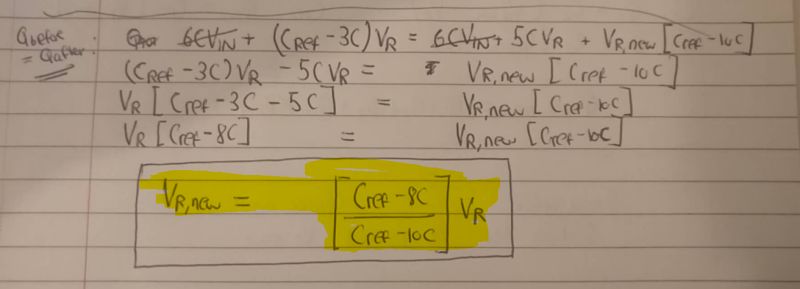 Qbefore = Qafter: 6CVIN + (Cref - 3C) VR = 6CVIN + 5CVR + VR,new [Cref - 10C]
(Cref - 3C) VR - 5CVR = VR,new [Cref - 10C]
VR [Cref - 3C - 5C] = VR,new [Cref - 10C]
VR [Cref - 8C] = VR,new [Cref - 10C]
VR,new = [Cref - 8C / Cref - 10C] VR